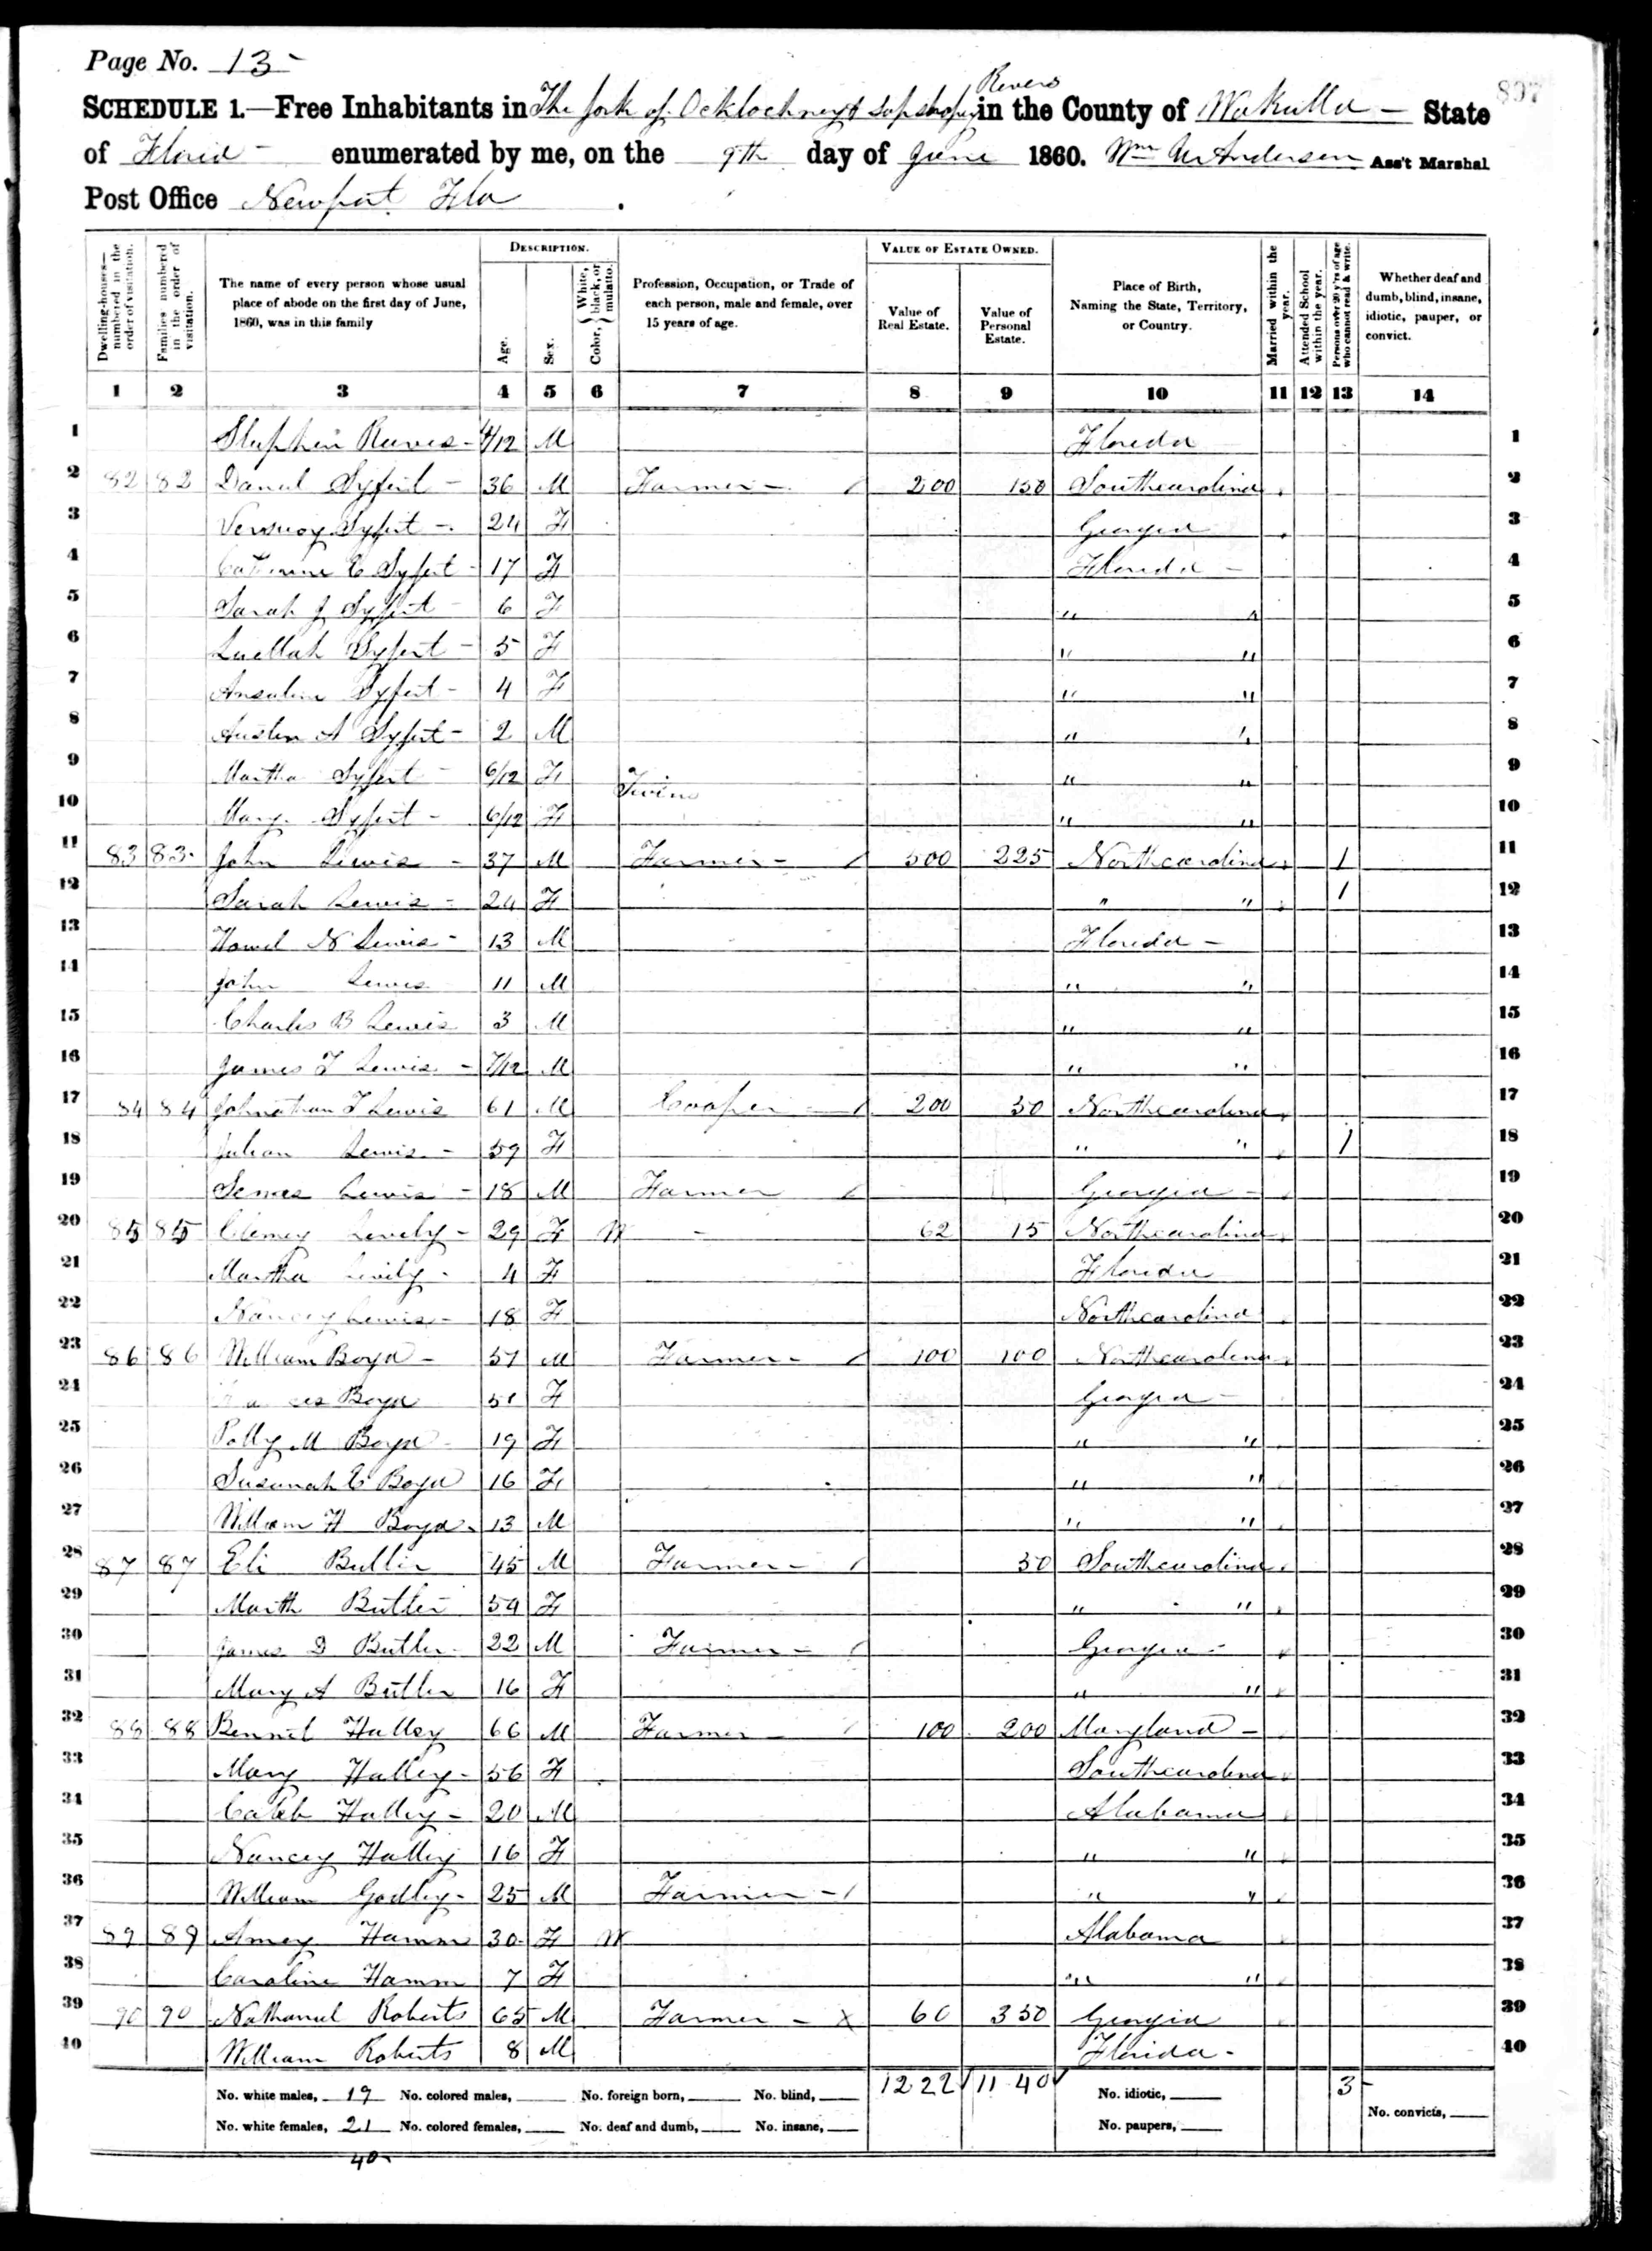 Page No. 13-
SCHEDULE 1.—Free Inhabitants in The fork of Ocklockney & Sopchopy Rivers in the County of Wakulla — State
of Florid - enumerated by me, on the 9th day of June 1860. Wm W Anderson Ass't Marshal
Post Office Newport Fla.
897
Dwelling-houses—numbered in the order of visitation.
Families numbered in the order of visitation.
The name of every person whose usual place of abode on the first day of June, 1860, was in this family
DESCRIPTION.
Age.
Sex.
Color, { White, black, or mulatto.
Profession, Occupation, or Trade of each person, male and female, over 15 years of age.
VALUE OF ESTATE OWNED.
Value of Real Estate.
Value of Personal Estate.
Place of Birth, Naming the State, Territory, or Country.
Married within the year.
Attended School within the year.
Persons over 20 y'rs of age who cannot read & write.
Whether deaf and dumb, blind, insane, idiotic, pauper, or convict.
1 2 3 4 5 6 7 8 9 10 11 12 13 14
1 Stephen Reeves - 4/12 M Floreda 1
2 82 82 Danel Syfert - 36 M Farmer - / 200 150 Southcarolina 2
3 Syfert - 24 F Georgia 3
4 Catherine E Syfert - 17 F Floreda - 4
5 Sarah J Syfert - 6 F " " 5
6 Luellah Syfert - 5 F " " 6
7 Ansaline Syfert - 4 F " " 7
8 Austin A Syfert - 2 M " " 8
9 Martha Syfert - 6/12 F Twins " " 9
10 Mary Syfert - 6/12 F " " 10
11 83 83- John Lewis - 37 M Farmer - / 500 225 Northcarolina 1 11
12 Sarah Lewis - 24 F " " 1 12
13 Howel N Lewis - 13 M Floreda - 13
14 John Lewis 11 M " " 14
15 Charles B Lewis 3 M " " 15
16 James T Lewis - 7/12 M " " 16
17 84 84 Johnathan T Lewis 61 M Cooper - / 200 50 Northcarolina 17
18 Julian Lewis - 59 F " " 1 18
19 Lewis - 18 M Farmer / Georgia - 19
20 85 85 Clemey Levely - 29 F W - 62 15 Northcarolina 20
21 Martha Levily - 4 F Floreda 21
22 Nancey Lewis - 18 F Northcarolina 22
23 86 86 William Boyd - 57 M Farmer - / 100 100 Northcarolina 23
24 Boyd 51 F Georgia - 24
25 Polly M Boyd - 19 F " " 25
26 Susanah E Boyd 16 F " " 26
27 William H Boyd - 13 M " " 27
28 87 87 Eli Butler 45 M Farmer - / 50 Southcarolina 28
29 Marth Butler 54 F " " 29
30 James D Butler - 22 M Farmer - / Georgia - 30
31 Mary A Butler 16 F " " 31
32 88 88 Bennet Halley 66 M Farmer - / 100 200 Maryland - 32
33 Mary Halley - 56 F Southcarolina 33
34 Caleb Halley - 20 M Alabama 34
35 Nancey Halley 16 F " " 35
36 William Godley - 25 M Farmer - / " " 36
37 89 89 Amey Hamm 30 - F W Alabama 37
38 Caroline Hamm 7 F " " 38
39 90 90 Nathanel Roberts 65 M Farmer - X 60 350 Georgia 39
40 William Roberts 8 M Florida - 40
No. white males, 19 No. colored males, No. foreign born, No. blind, 1222 1140 No. idiotic, 3
No. white females, 21 No. colored females, No. deaf and dumb, No. insane, No. paupers, No. convicts,
40